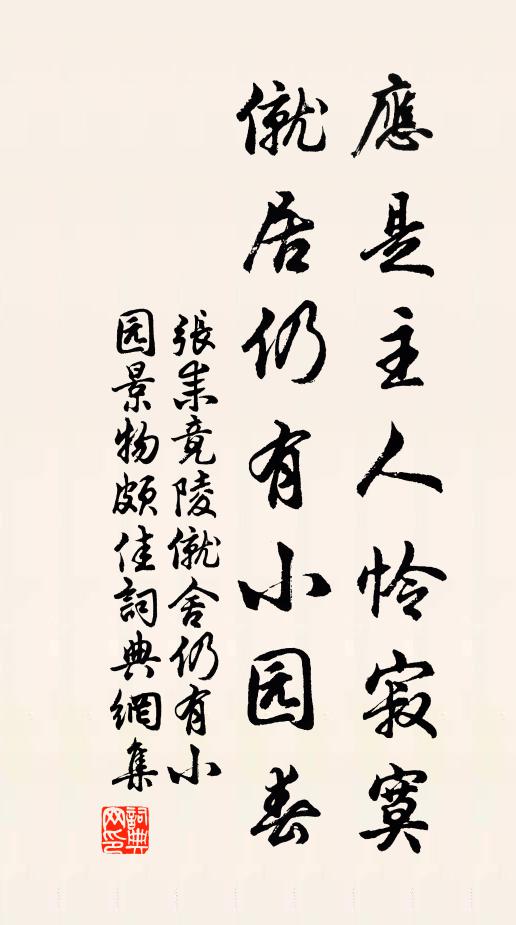 應是主人怜寂寞
僦居仍有小园春
張耒竟陵僦舍仍有小
园景物頗佳詞典網集
詞典
网印